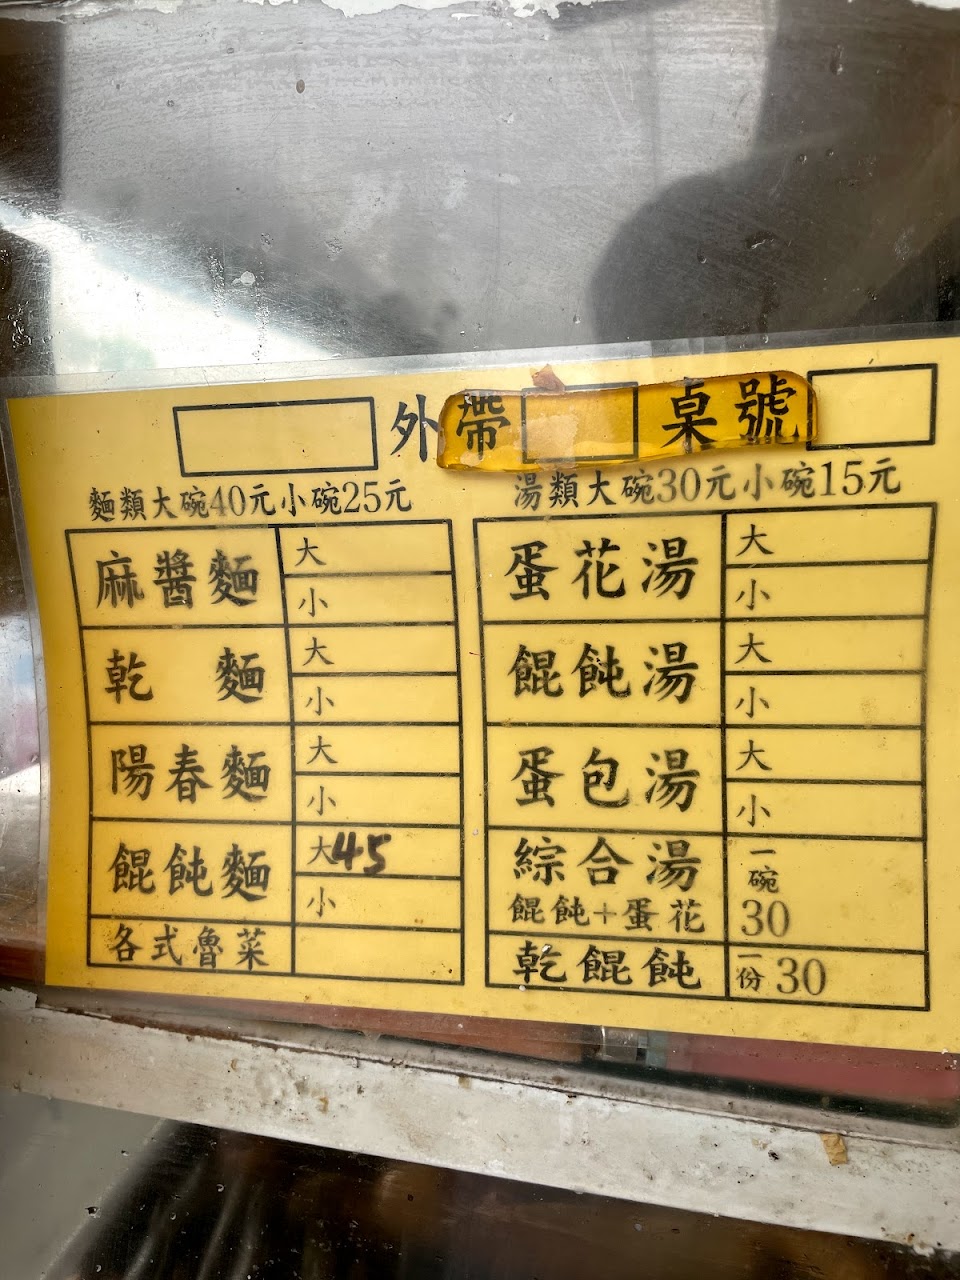 外帶 桌號
麵類大碗40元小碗25元
麻醬麵 大
小
乾麵 大
小
陽春麵 大
小
餛飩麵 大45
小
各式魯菜
湯類大碗30元小碗15元
蛋花湯 大
小
餛飩湯 大
小
蛋包湯 大
小
綜合湯 一碗
餛飩+蛋花 30
乾餛飩 一份 30